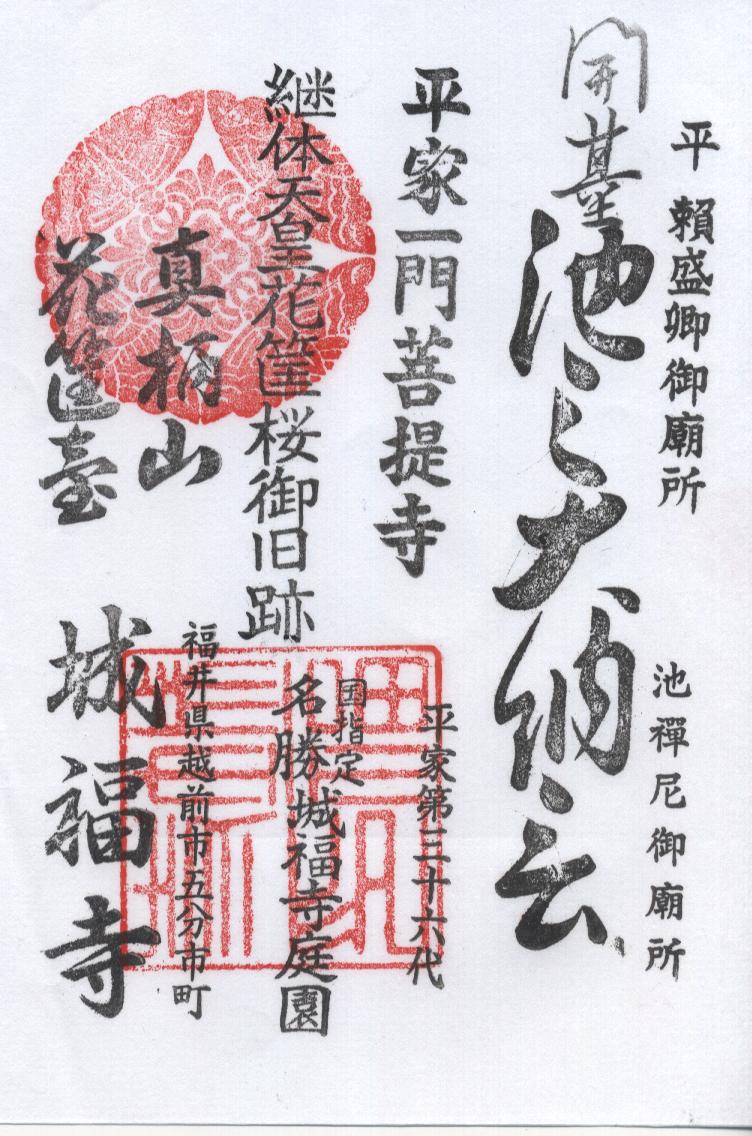 平 賴盛卿御廟所
池禪尼御廟所
開基池之大納言
平家一門菩提寺
平家第三十六代
継体天皇花筐桜御旧跡
国指定
名勝城福寺庭園
真柄山
福井県越前市五分市町
花筐臺
城福寺